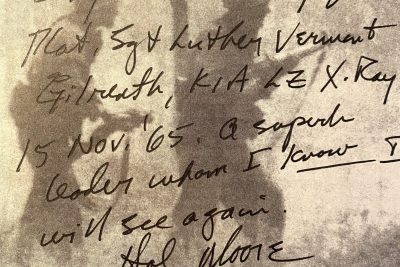 Plat. Sgt Luther Vermont
Gilreath, KIA LZ X-Ray
15 Nov. '65. A superb
leader whom I know I
will see again.
Hal Moore